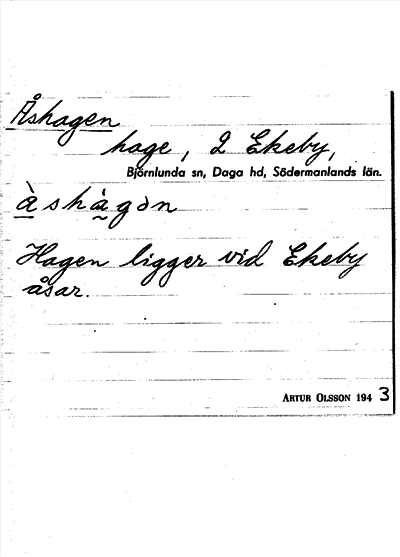 Åshagen
hage, 2 Ekeby,
Björnlunda sn, Daga hd, Södermanlands län.
å̀shå̀gən
Hagen ligger vid Ekeby
åsar.
ARTUR OLSSON 1943